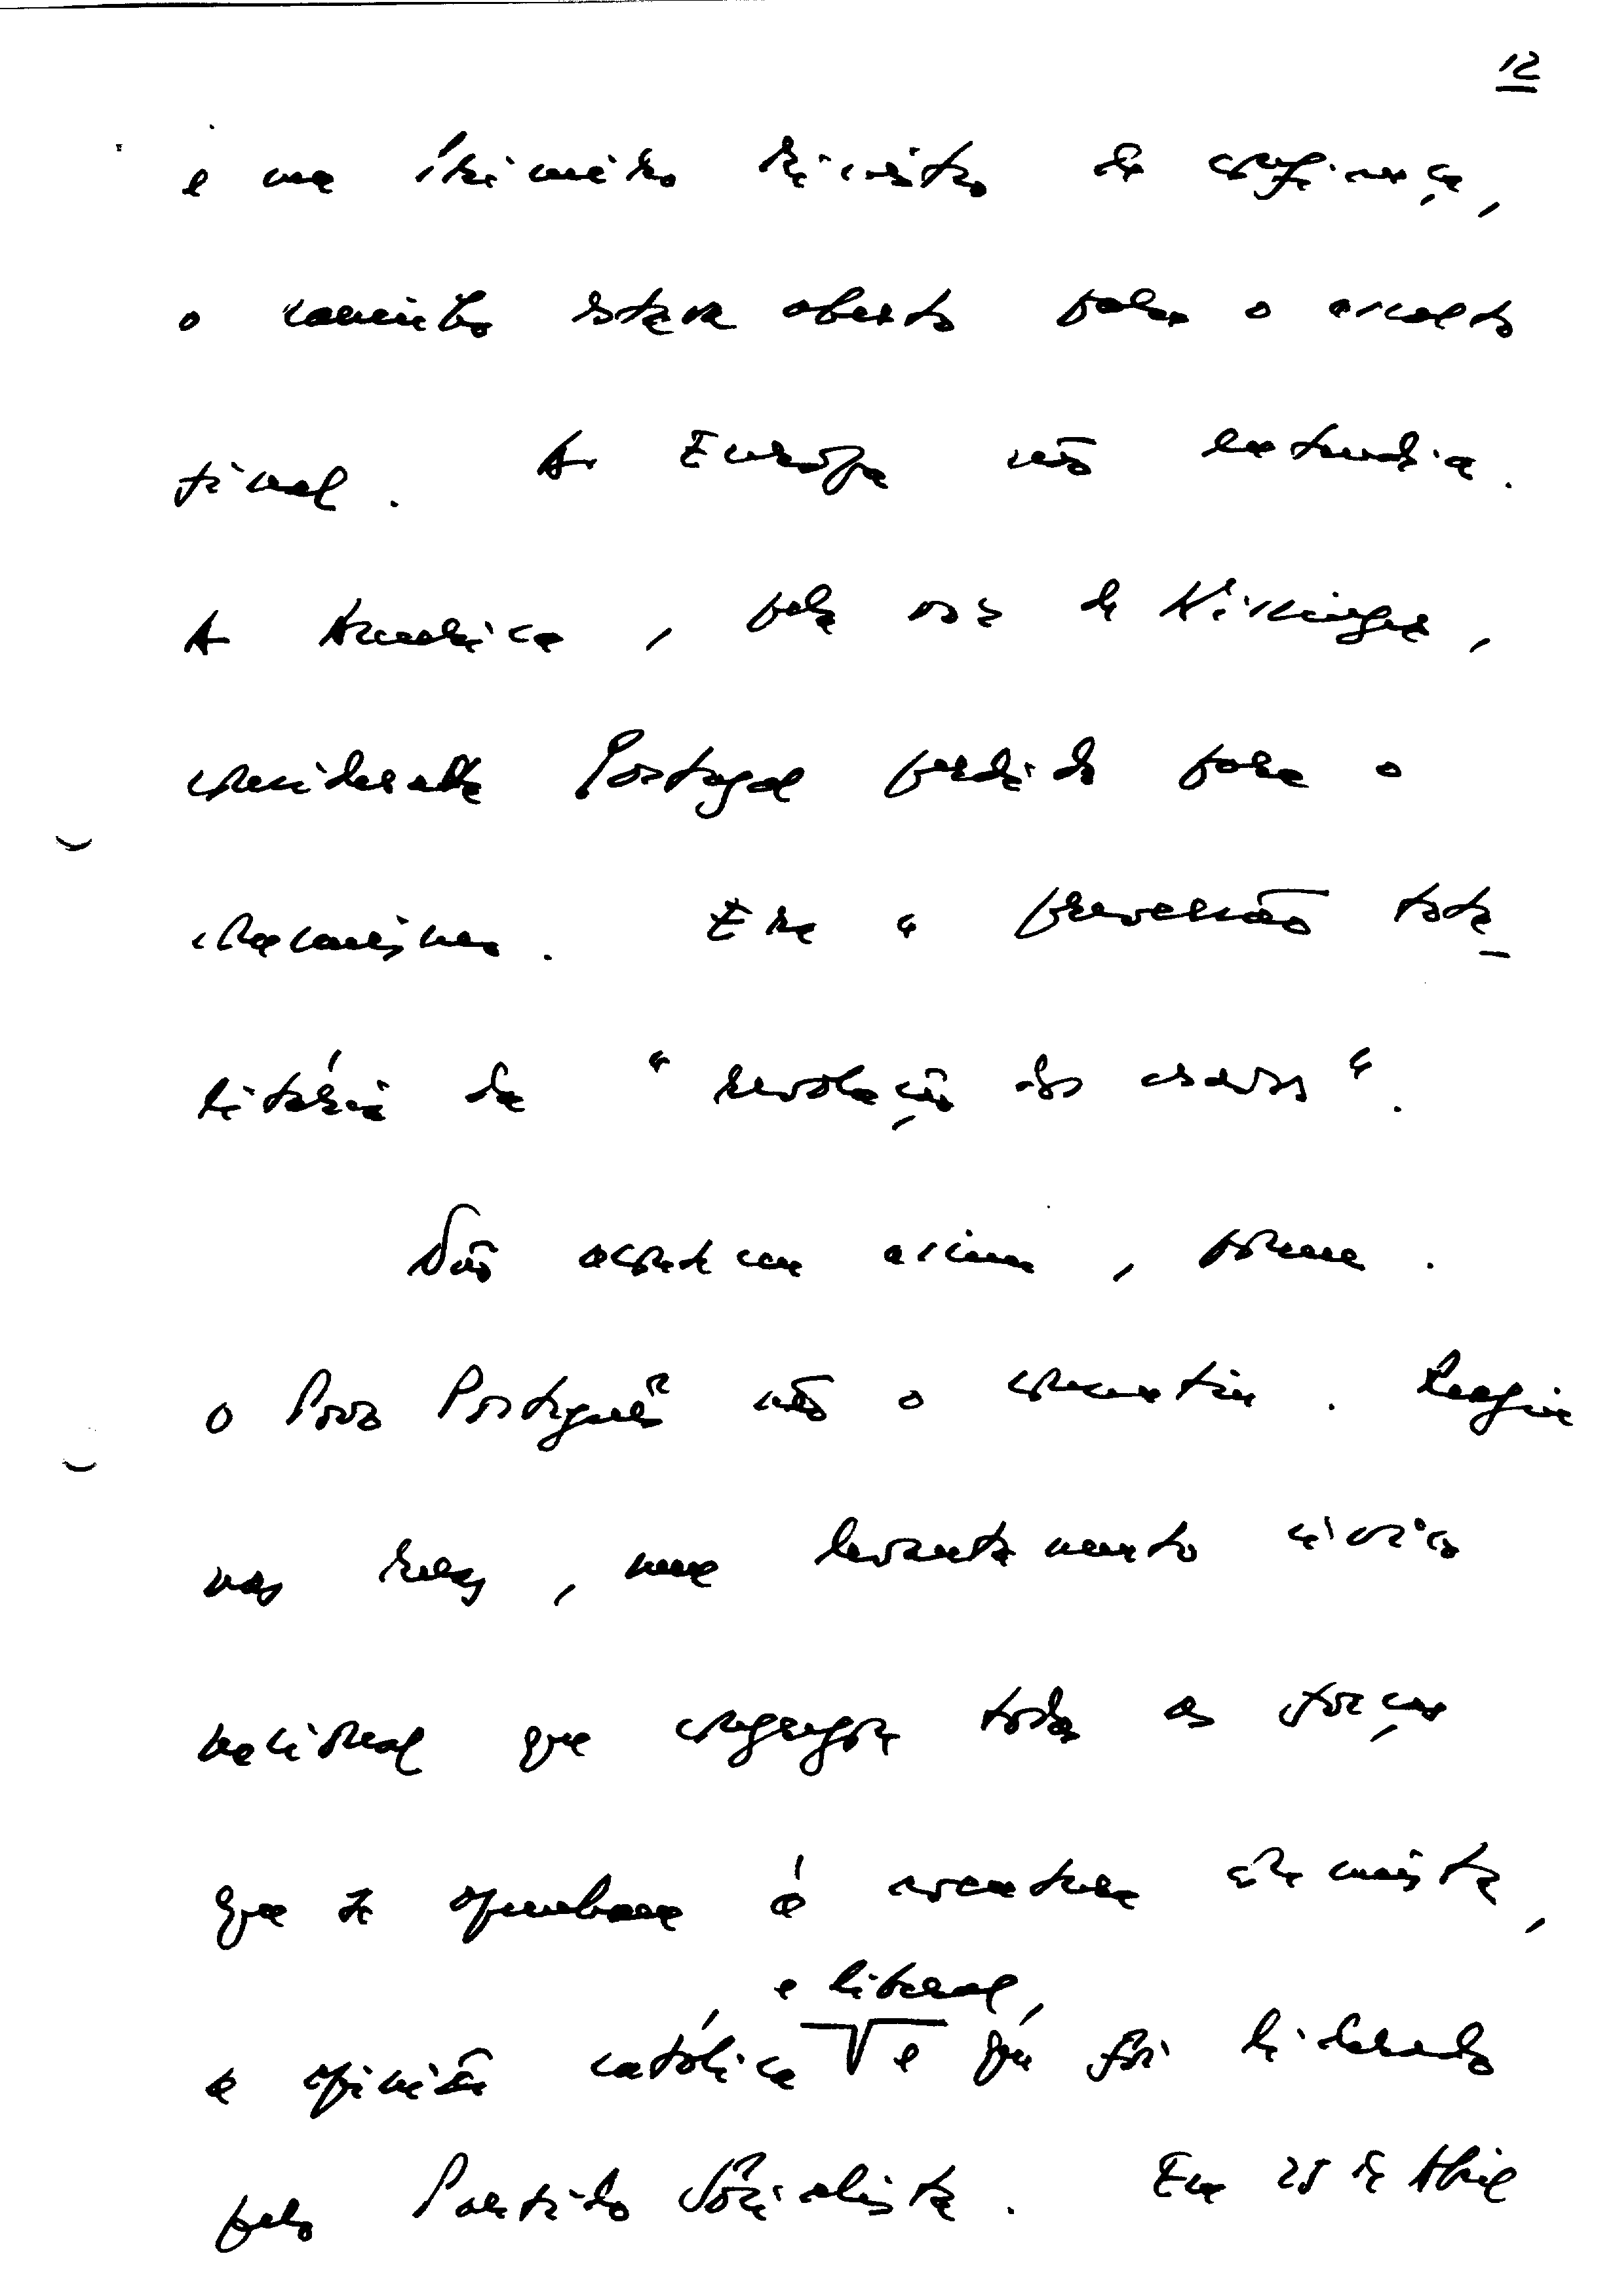 12
e um primeiro ministro de confiança,
o caminho estava aberto para o assalto
final. A Europa não entendia.
A America, pela voz de Kissinger,
considerava Portugal perdido para o
comunismo. Era a perversão tota_
litária da "revolução dos cravos".
Não aconteceu assim, porem.
o Povo Português não o consentiu. Reagiu
nas ruas, num levantamento cívico
nacional que congregou todas as forças
que se opunham á aventura comunista,
e liberal,
a opinião católica e que foi liderado
pelo Partido Socialista. Em 25 de Abril